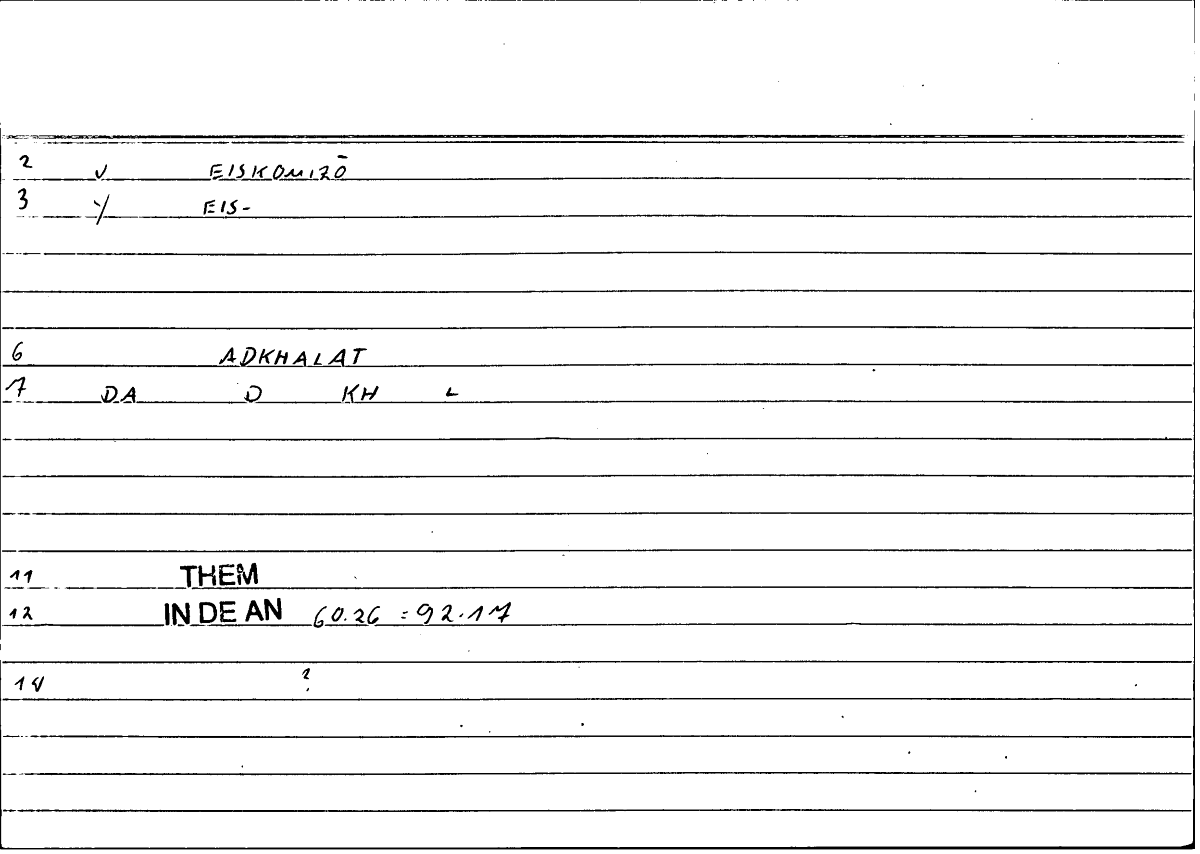 2 v EISKOMIZŌ
3 y EIS-
6 ADKHALAT
7 DA D KH L
11 THEM
12 IN DE AN 60.26 = 92.17
14 ?